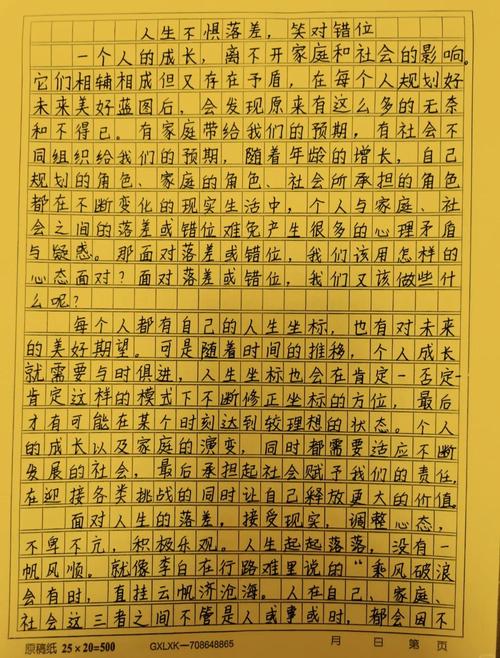 人生不惧落差，笑对错位
一个人的成长，离不开家庭和社会的影响。
它们相辅相成但又存在矛盾，在每个人规划好
未来美好蓝图后，会发现原来有这么多的无奈
和不得已。有家庭带给我们的预期，有社会不
同组织给我们的预期，随着年龄的增长，自己
规划的角色、家庭的角色、社会所承担的角色
都在不断变化的现实生活中，个人与家庭、社
会之间的落差或错位难免产生很多的心理矛盾
与疑惑。那面对落差或错位，我们该用怎样的
心态面对？面对落差或错位，我们又该做些什
么呢？
每个人都有自己的人生坐标，也有对未来
的美好期望。可是随着时间的推移，个人成长
就需要与时俱进，人生坐标也会在肯定一否定一
肯定这样的模式下不断修正坐标的方位，最后
才有可能在某个时刻达到较理想的状态。个人
的成长以及家庭的演变，同时都需要适应不断
发展的社会，最后承担起社会赋予我们的责任，
在迎接各类挑战的同时让自己释放更大的价值。
面对人生的落差，接受现实，调整心态，
不卑不亢，积极乐观。人生起起落落，没有一
帆风顺。就像李白在行路难里说的“乘风破浪
会有时，直挂云帆济沧海。人在自己、家庭、
社会这三者之间不管是人或事或时，都会因不
原稿纸 25×20=500 GXLXK—708648865 月 日 第 页